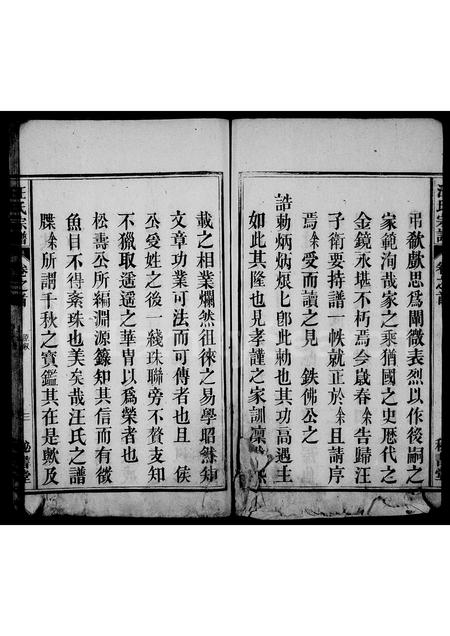 弔欷歔思為闡微表烈以作後嗣之
家範洵哉家之乘猶國之史歷代之
金鏡永堪不朽焉今歲春余告歸汪
子衛要持譜一帙就正於余且請序
焉余受而讀之見 鉄佛公之
誥勅炳炳烺七郎此勅也其功高遇主
如此其隆也見孝謹之家訓凜
載之相業爛然徂徠之易學昭然知
文章功業可法而可傳者也且 侯
公受姓之後一綫珠聯旁不贅支知
不獵取遥遥之華胄以為榮者也
松壽公所編淵源錄知其信而有徵
魚目不得紊珠也美矣哉汪氏之譜
牒余所謂千秋之寶鑑其在是歟及
汪氏宗譜
卷之首